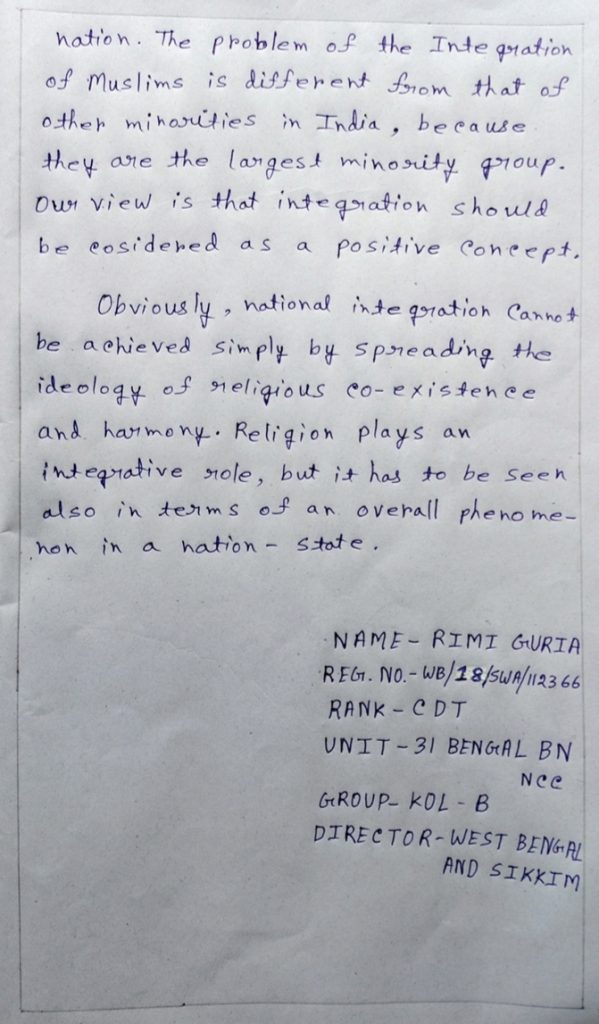 nation. The problem of the Integration
of Muslims is different from that of
other minorities in India, because
they are the largest minority group.
Our view is that integration should
be cosidered as a positive concept.
Obviously, national integration cannot
be achieved simply by spreading the
ideology of religious co-existence
and harmony. Religion plays an
integrative role, but it has to be seen
also in terms of an overall phenome-
non in a nation - state.
NAME - RIMI GURIA
REG. NO. - WB/18/SWA/112366
RANK - CDT
UNIT - 31 BENGAL BN
NCC
GROUP - KOL - B
DIRECTOR - WEST BENGAL
AND SIKKIM